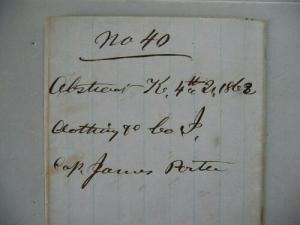 No 40
Abstract K, 4th Qr, 1863
Clothing &c Co I,
Cap. James Porter